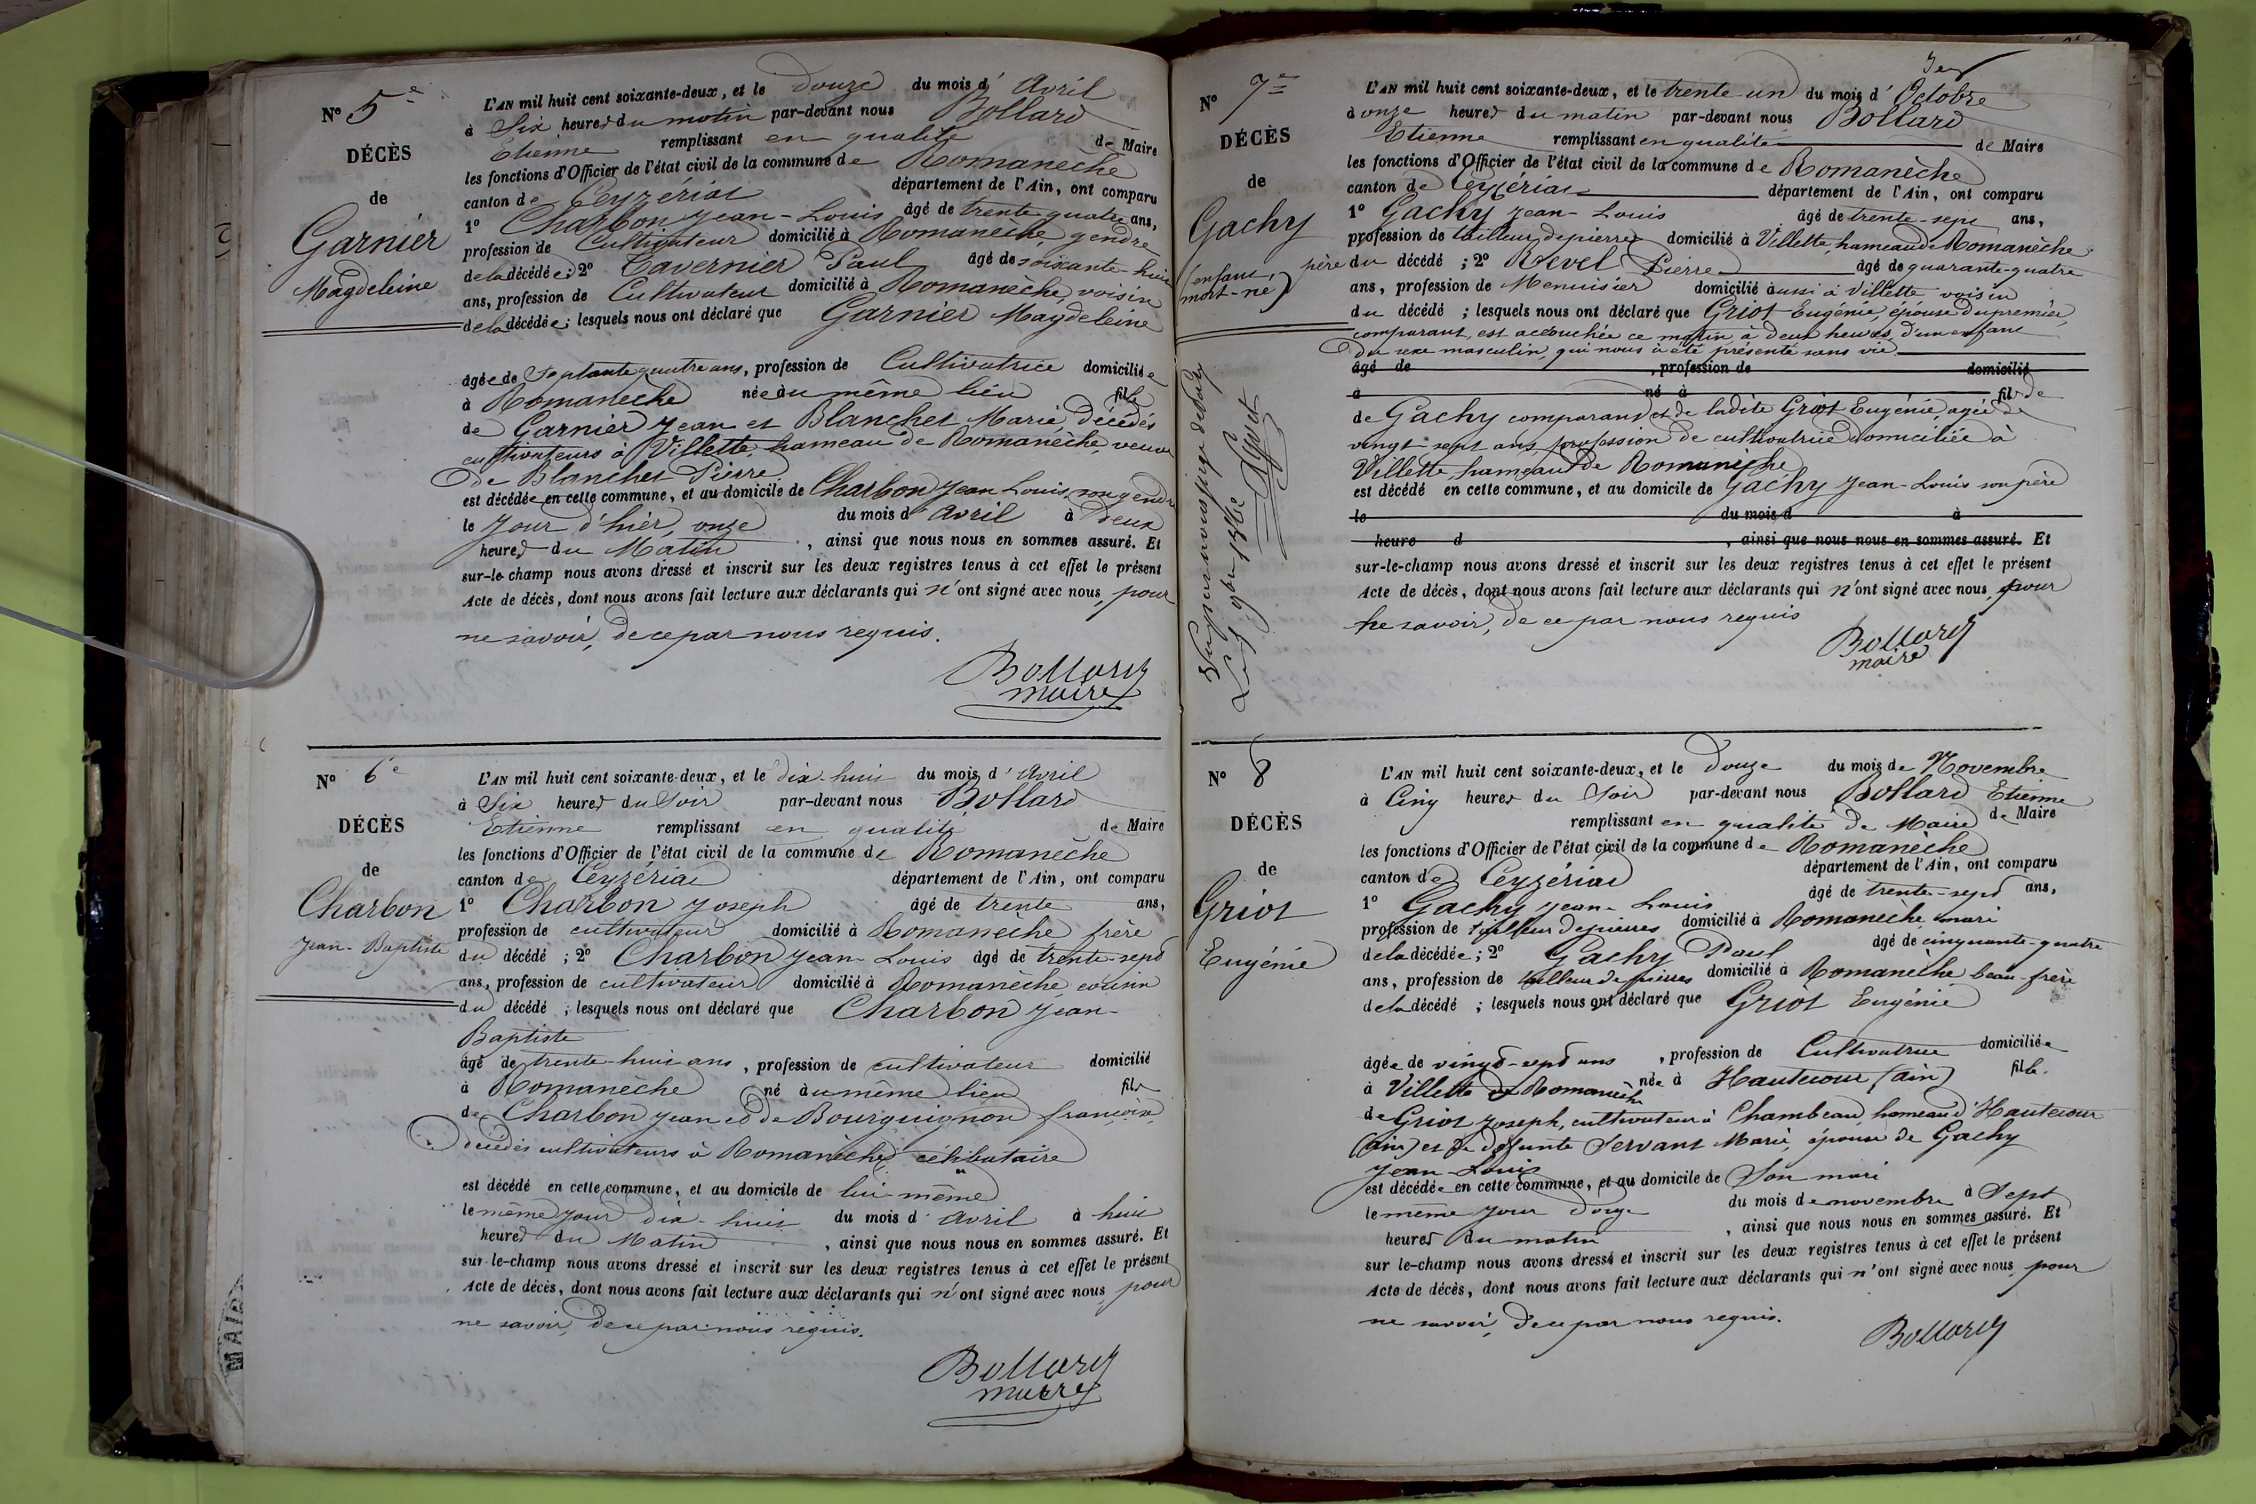 N° 5e
DÉCÈS
de
Garnier
Magdeleine
L'AN mil huit cent soixante-deux, et le douze du mois d' Avril
à Six heures du matin par-devant nous Bollard
Etienne remplissant en qualité de Maire
les fonctions d'Officier de l'état civil de la commune de Romanèche
canton de Ceyzériat département de l'Ain, ont comparu
1° Charbon Jean-Louis âgé de trente quatre ans,
profession de Cultivateur domicilié à Romanèche, gendre
de la décédée; 2° Tavernier Paul âgé de soixante-huit
ans, profession de Cultivateur domicilié à Romanèche, voisin
de la décédée; lesquels nous ont déclaré que Garnier Magdeleine
âgée de Septante quatre ans, profession de Cultivatrice domiciliée
à Romanèche née au même lieu fille
de Garnier Jean et Blanchet Marie, décédés
cultivateurs à Villette, hameau de Romanèche, veuve
de Blanchet Pierre
est décédée en cette commune, et au domicile de Charbon Jean Louis, son gendre
le Jour d'hier, onze du mois d' Avril à deux
heures du Matin, ainsi que nous nous en sommes assuré. Et
sur-le-champ nous avons dressé et inscrit sur les deux registres tenus à cet effet le présent
Acte de décès, dont nous avons fait lecture aux déclarants qui n'ont signé avec nous, pour
ne savoir, de ce par nous requis.
Bollard
maire
N° 6e
DÉCÈS
de
Charbon
Jean-Baptiste
L'AN mil huit cent soixante-deux, et le dix-huit du mois d' Avril
à Six heures du Soir par-devant nous Bollard
Etienne remplissant en qualité de Maire
les fonctions d'Officier de l'état civil de la commune de Romanèche
canton de Ceyzériat département de l'Ain, ont comparu
1° Charbon Joseph âgé de trente ans,
profession de cultivateur domicilié à Romanèche frère
du décédé; 2° Charbon Jean Louis âgé de trente-sept
ans, profession de cultivateur domicilié à Romanèche, cousin
du décédé; lesquels nous ont déclaré que Charbon Jean-
Baptiste
âgé de trente-huit ans, profession de cultivateur domicilié
à Romanèche né au même lieu fils
de Charbon Jean et de Bourguignon françoise,
décédés cultivateurs à Romanèche, célibataire
est décédé en cette commune, et au domicile de lui-même
le même jour dix-huit du mois d' Avril à huit
heures du Matin, ainsi que nous nous en sommes assuré. Et
sur-le-champ nous avons dressé et inscrit sur les deux registres tenus à cet effet le présent
Acte de décès, dont nous avons fait lecture aux déclarants qui n'ont signé avec nous, pour
ne savoir, de ce par nous requis.
Bollard
maire
MAIR
N° 7e
DÉCÈS
de
Gachy
(enfant
mort-né)
Vu par nous juge de paix
Le 7 9bre 1862
L'AN mil huit cent soixante-deux, et le trente-un du mois d' Octobre
à onze heures du matin par-devant nous Bollard
Etienne remplissant en qualité de Maire
les fonctions d'Officier de l'état civil de la commune de Romanèche
canton de Ceyzériat département de l'Ain, ont comparu
1° Gachy Jean-Louis âgé de trente-sept ans,
profession de tailleur de pierres domicilié à Villette, hameau de Romanèche
père du décédé; 2° Revel Pierre âgé de quarante-quatre
ans, profession de Menuisier domicilié aussi à Villette voisin
du décédé; lesquels nous ont déclaré que Griot Eugénie, épouse du premier
comparant, est accouchée ce matin, à deux heures, d'un enfant
du sexe masculin, qui nous a été présenté sans vie.
âgé de, profession de domicilié
à né à fils de
de Gachy comparant et de ladite Griot Eugénie, agée de
vingt-sept ans profession de cultivatrice domiciliée à
Villette, hameau de Romanèche
est décédé en cette commune, et au domicile de Gachy Jean-Louis son père
le du mois d à
heure d, ainsi que nous nous en sommes assuré. Et
sur-le-champ nous avons dressé et inscrit sur les deux registres tenus à cet effet le présent
Acte de décès, dont nous avons fait lecture aux déclarants qui n'ont signé avec nous, pour
ne savoir, de ce par nous requis
Bollard
maire
N° 8
DÉCÈS
de
Griot
Eugénie
L'AN mil huit cent soixante-deux, et le douze du mois de Novembre
à Cinq heures du Soir par-devant nous Bollard Etienne
remplissant en qualité de Maire de Maire
les fonctions d'Officier de l'état civil de la commune de Romanèche
canton de Ceyzériat département de l'Ain, ont comparu
1° Gachy Jean-Louis âgé de trente-sept ans,
profession de tailleur de pierres domicilié à Romanèche mari
de la décédée; 2° Gachy Paul âgé de cinquante-quatre
ans, profession de tailleur de pierres domicilié à Romanèche, beau-frère
de la décédé; lesquels nous ont déclaré que Griot Eugénie
âgée de vingt-sept ans, profession de Cultivatrice domiciliée
à Villette Romanèche née à Hautecour (ain) fille
de Griot Joseph, cultivateur à Chambeau, hameau d'Hautecour
(ain) et de défunte Servant Marie, épouse de Gachy
Jean-Louis
est décédée en cette commune, et au domicile de Son mari
le même jour douze du mois de novembre à Sept
heures du matin, ainsi que nous nous en sommes assuré. Et
sur le-champ nous avons dressé et inscrit sur les deux registres tenus à cet effet le présent
Acte de décès, dont nous avons fait lecture aux déclarants qui n'ont signé avec nous, pour
ne savoir, de ce par nous requis.
Bollard